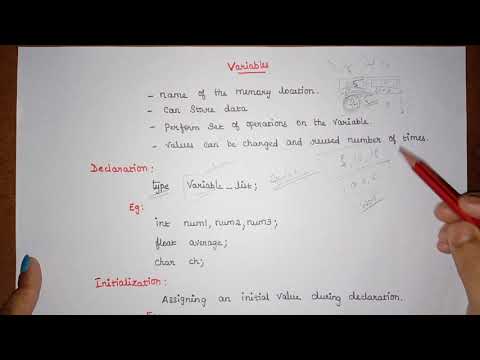 Variables
- name of the memory location.
- Can Store data
- Perform Set of operations on the variable.
- Values can be changed and reused number of times.
Declaration:
type Variable_list;
Eg:
int num1, num2, num3;
float average;
char ch;
Initialization:
Assigning an initial value during declaration.